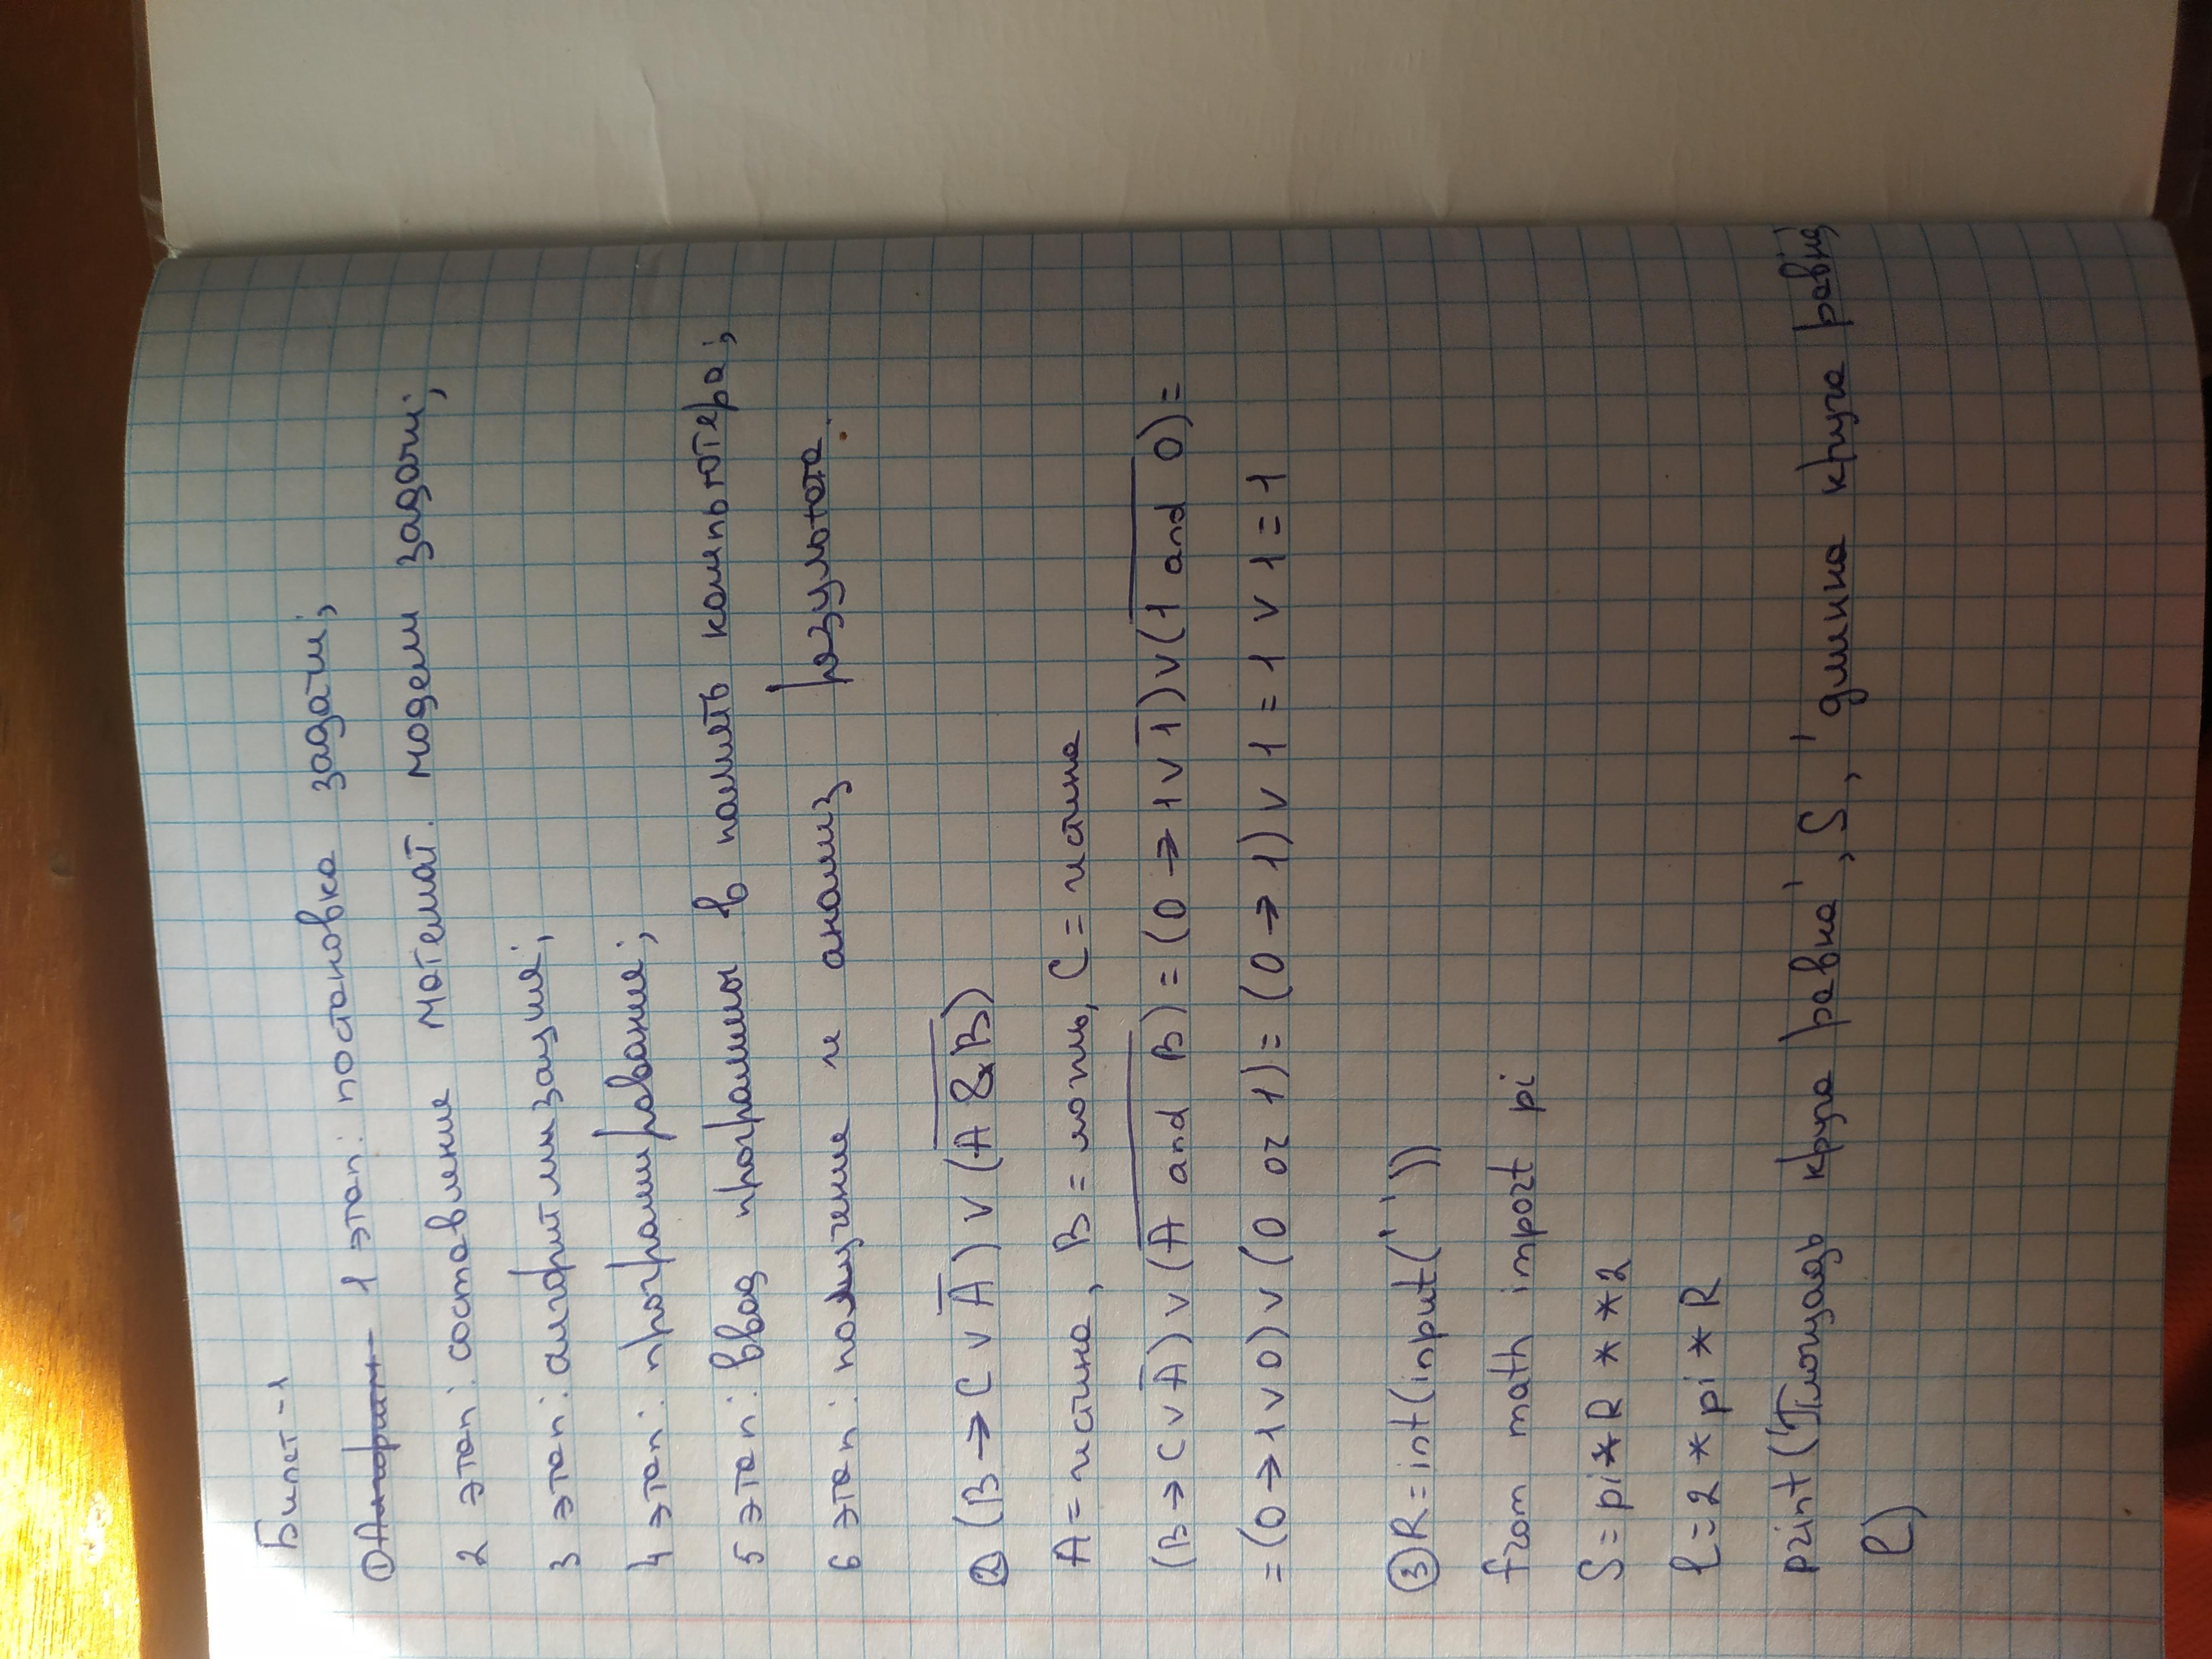 Билет-1
① Алгоритм 1 этап: постановка задачи;
2 этап: составление математ. модели задачи;
3 этап: алгоритмизация;
4 этап: программирование;
5 этап: ввод программы в память компьютера;
6 этап: получение и анализ результата.
② (B → C ∨ A̅) ∨ (A̅ ̅&̅ ̅B̅)
A = истина, B = ложь, C = истина
(B → C ∨ A̅) ∨ (A̅ ̅a̅n̅d̅ ̅B̅) = (0 → 1 ∨ 1̅) ∨ (1̅ ̅a̅n̅d̅ ̅0̅) =
= (0 → 1 ∨ 0) ∨ (0 or 1) = (0 → 1) ∨ 1 = 1 ∨ 1 = 1
③ R = int(input(' '))
from math import pi
S = pi * R * * 2
l = 2 * pi * R
print('Площадь круга равна', S, 'длина круга равна',
l)